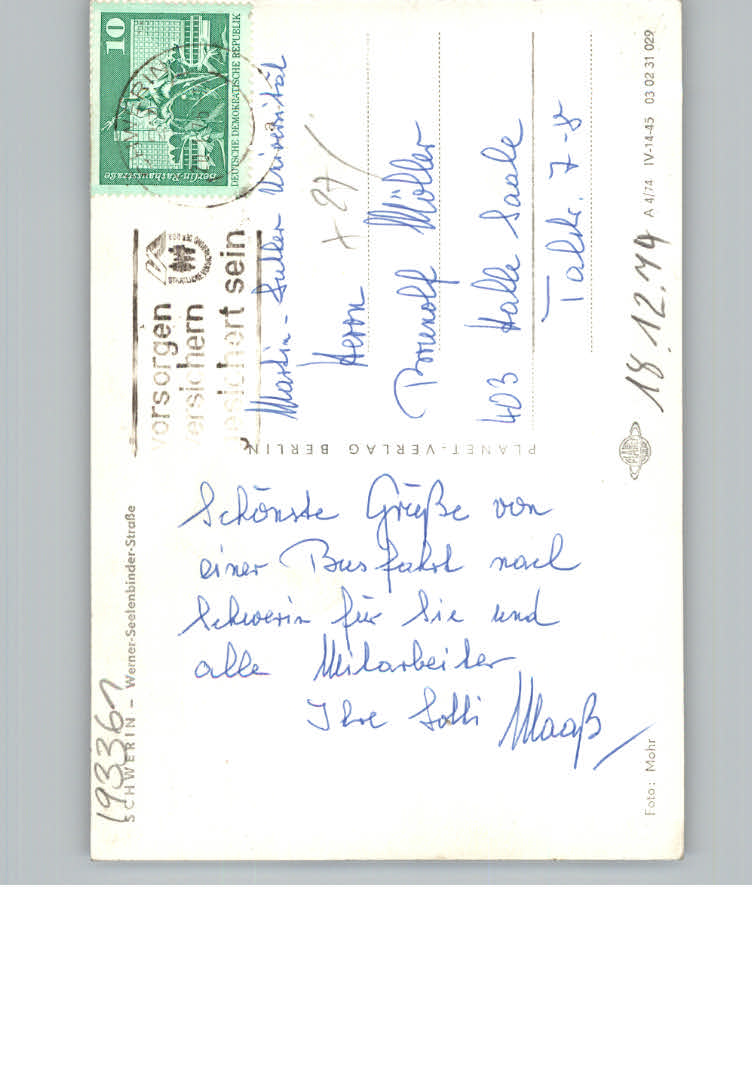 10
DEUTSCHE DEMOKRATISCHE REPUBLIK
Berlin-Rathausstraße
vorsorgen
versichern
gesichert sein
Martin-Luther Universität
Herrn
Brunolf Müller
403 Halle Saale
Talstr. 7-8
+ 27/
18.12.74
PLANET-VERLAG BERLIN
A 4/74 IV-14-45 03 02 31 029
SCHWERIN – Werner-Seelenbinder-Straße
19336
Schönste Grüße von
einer Busfahrt nach
Schwerin für Sie und
alle Mitarbeiter
Ihre Lolli Maaß
Foto: Mohr